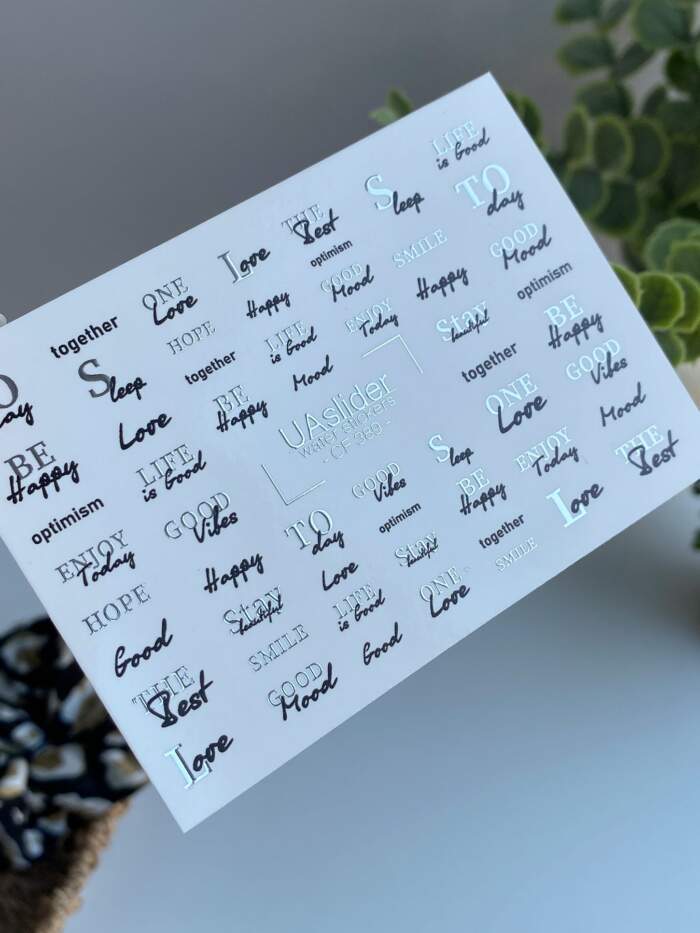 together
ONE
Love
Love
THE
Best
Sleep
LIFE
is Good
O
ay
Sleep
HOPE
together
Happy
LIFE
is Good
optimism
GOOD
Mood
SMILE
TO
day
BE
Happy
Love
BE
Happy
Mood
ENJOY
Today
Happy
GOOD
Mood
optimism
LIFE
is Good
UAslider
water stickers
- CF 389 -
Stay
beautiful
optimism
ENJOY
Today
GOOD
Vibes
together
BE
Happy
HOPE
Happy
TO
day
GOOD
Vibes
Sleep
ONE
Love
GOOD
Vibes
Good
Stay
beautiful
Love
optimism
Stay
beautiful
BE
Happy
ENJOY
Today
Mood
THE
Best
SMILE
LIFE
is Good
together
SMILE
Love
THE
Best
Love
GOOD
Mood
Good
ONE
Love